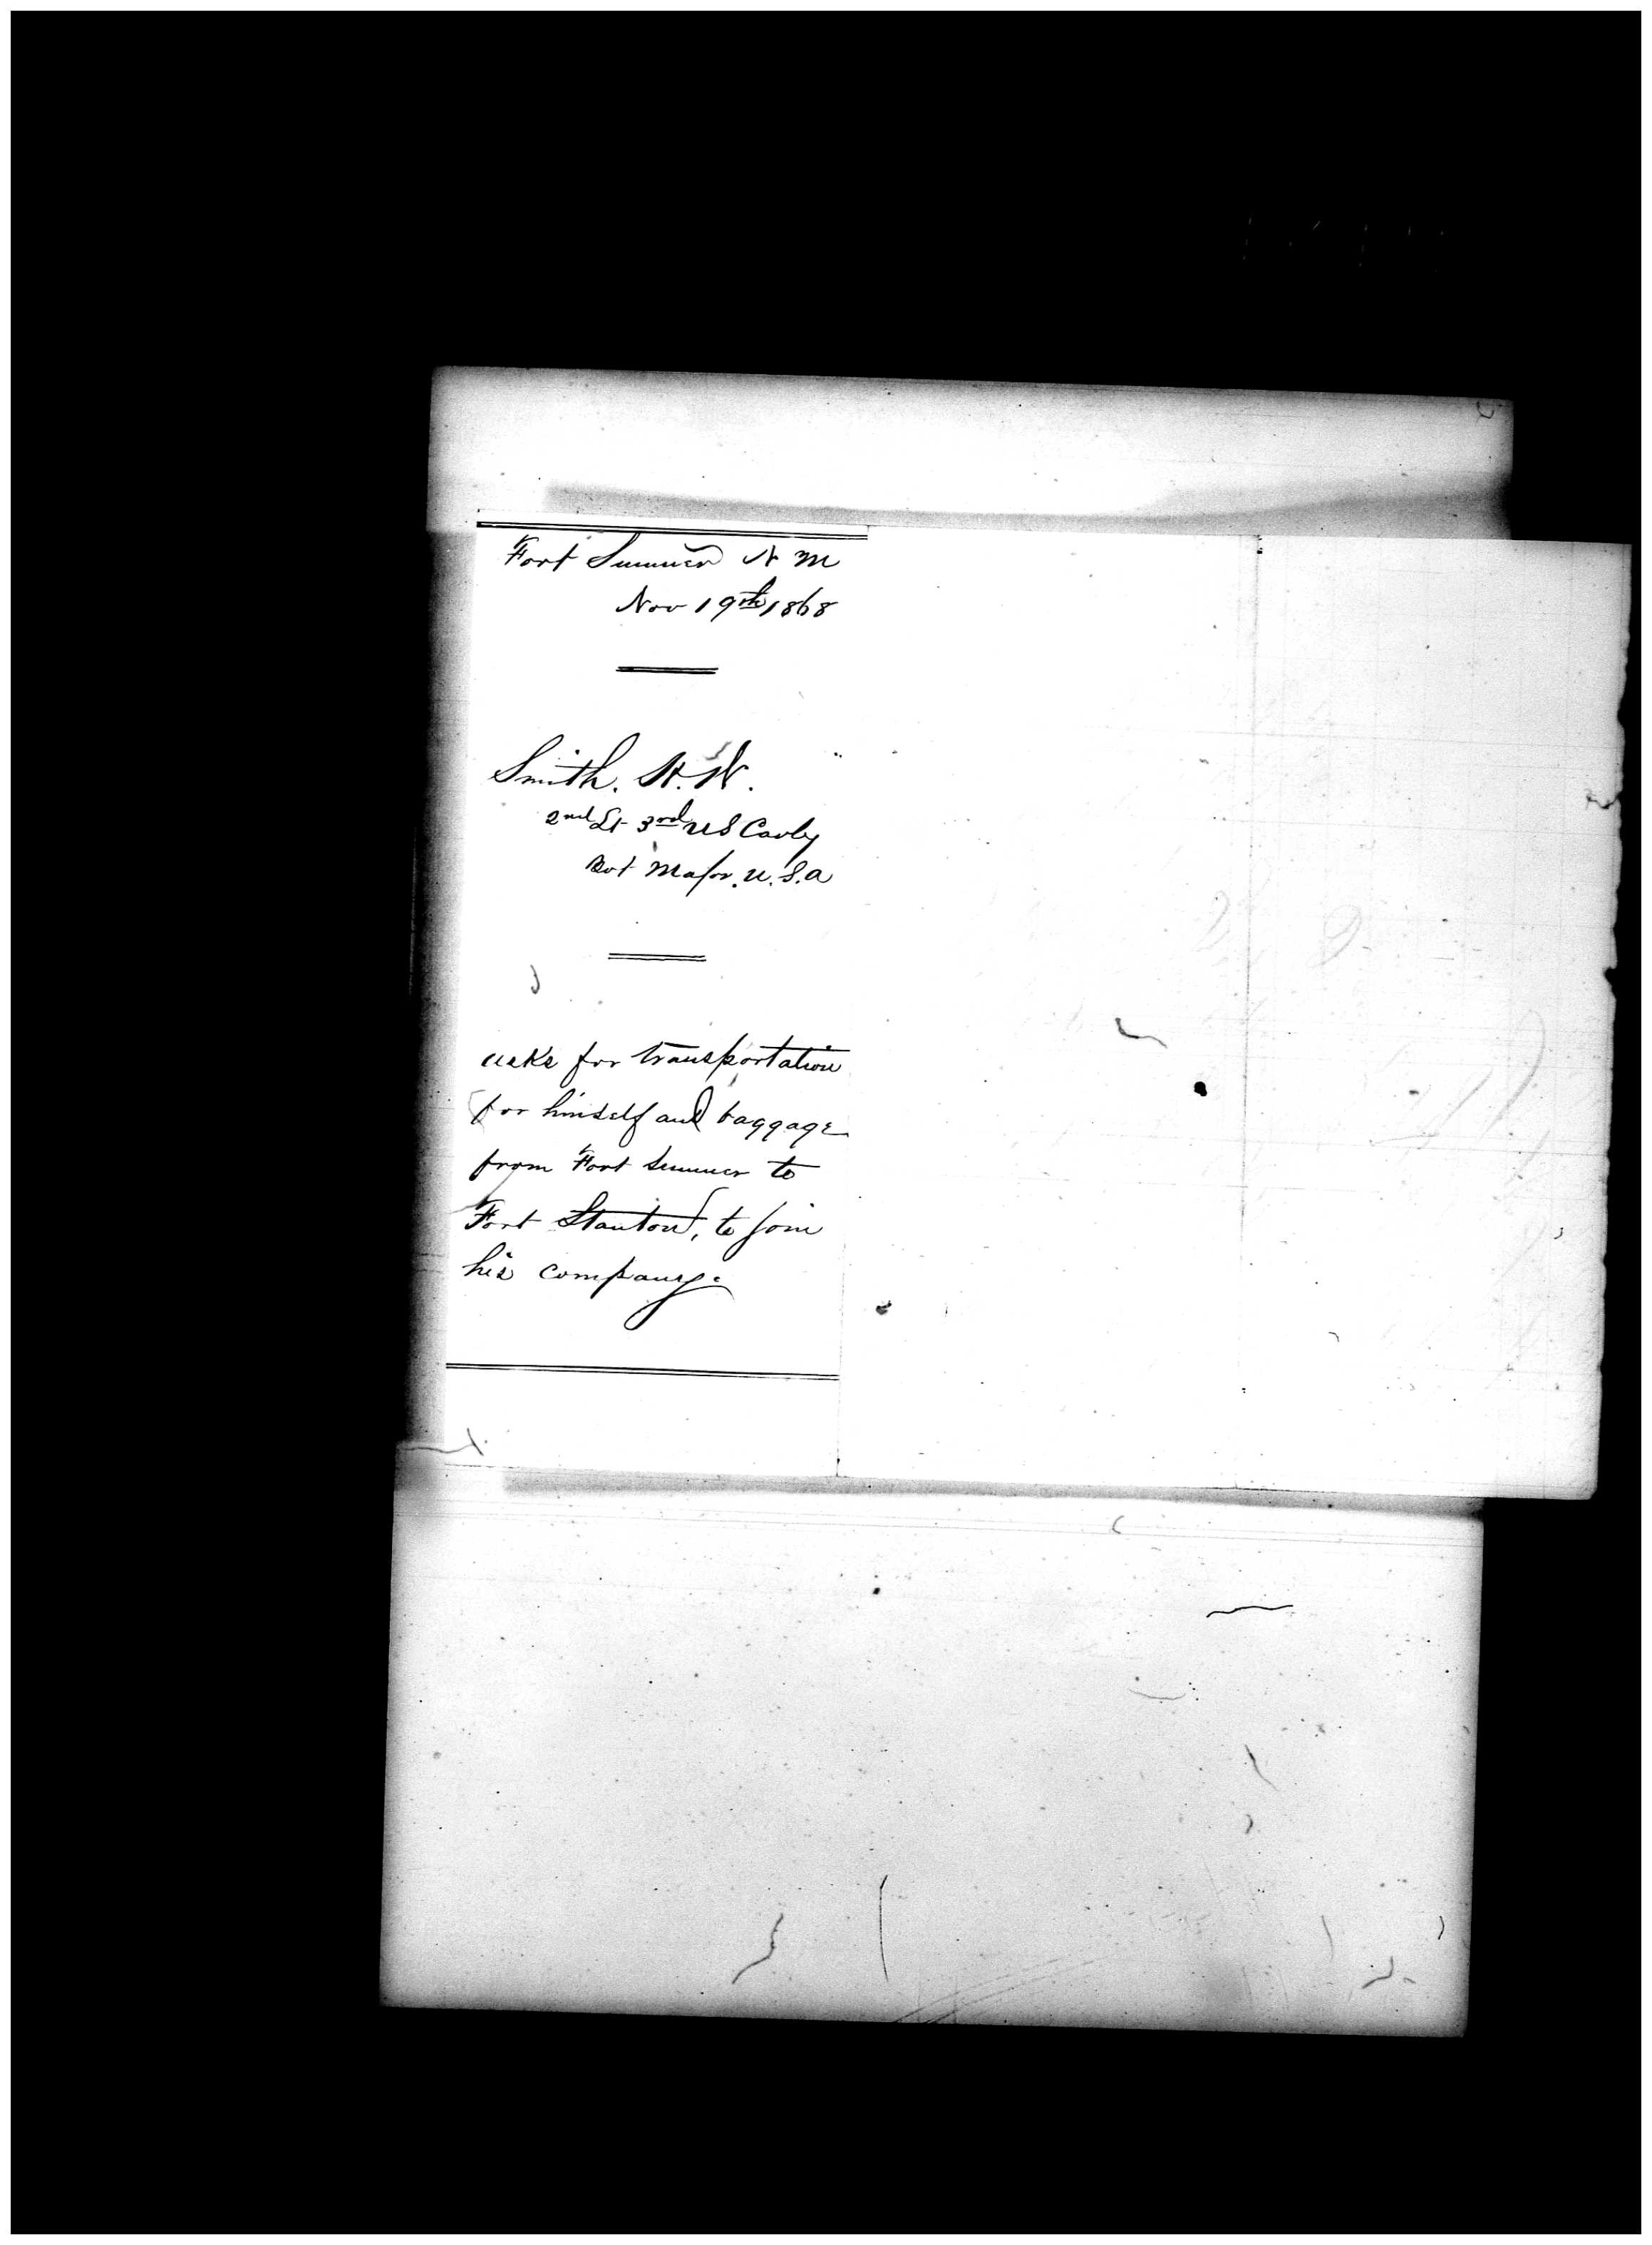 Fort Sumner N M
Nov 19th 1868
Smith. H. W.
2nd Lt 3rd US Cavly
Bvt Major. U.S.A
asks for transportation
for himself and baggage
from Fort Sumner to
Fort Stanton, to join
his company.